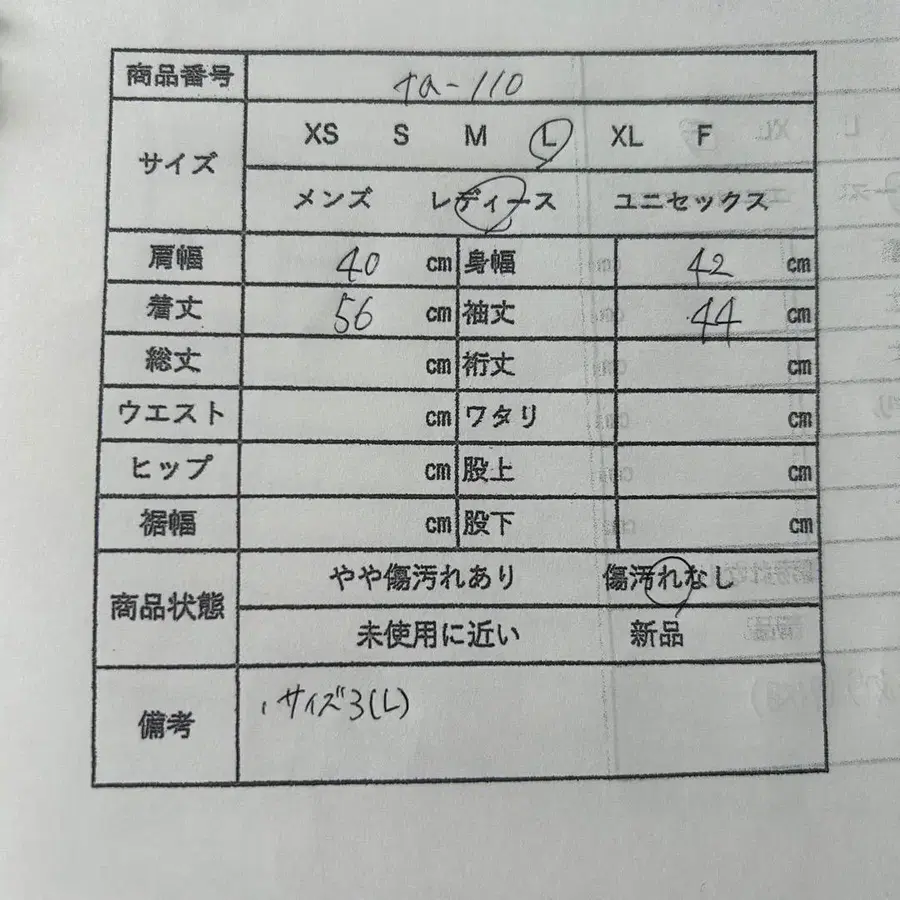 商品番号 ta-110
サイズ XS S M L XL F
メンズ レディース ユニセックス
肩幅 40 cm 身幅 42 cm
着丈 56 cm 袖丈 44 cm
総丈 cm 裄丈 cm
ウエスト cm ワタリ cm
ヒップ cm 股上 cm
裾幅 cm 股下 cm
商品状態 やや傷汚れあり 傷汚れなし
未使用に近い 新品
備考 ・サイズ3(L)